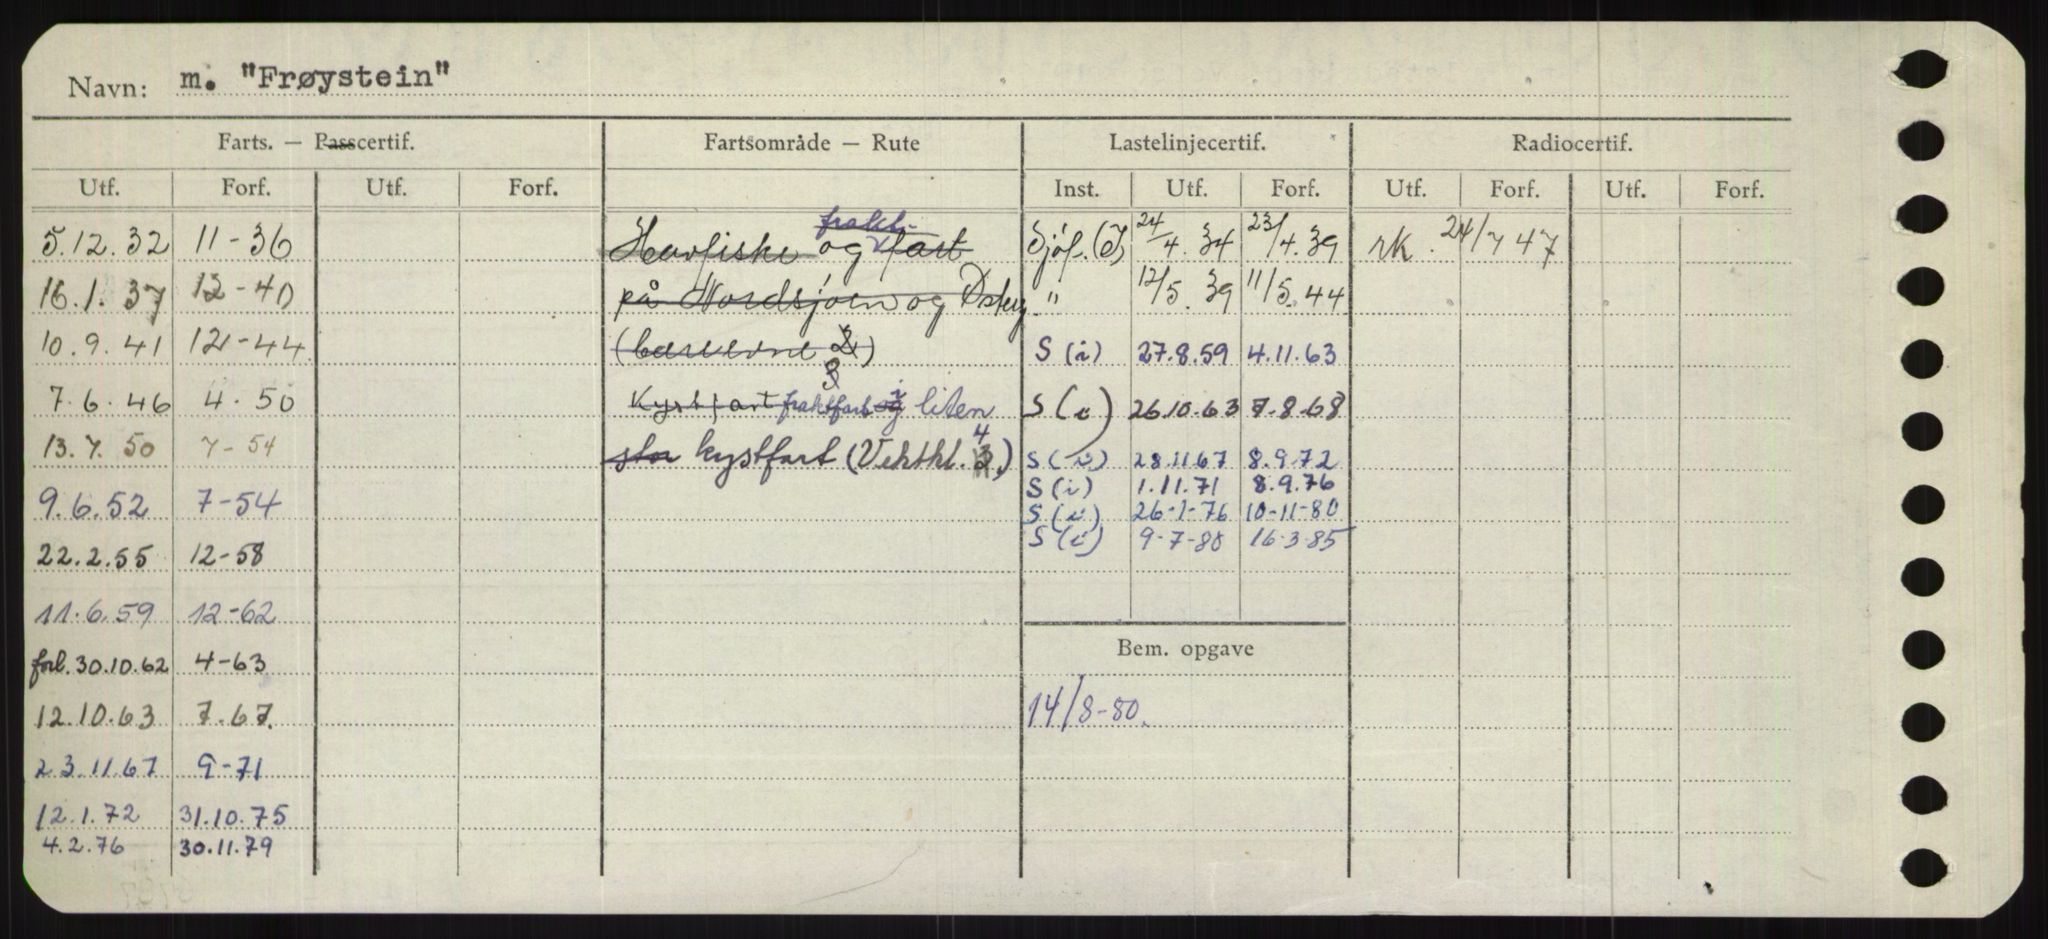 Navn: m. "Frøystein"
Farts. — Passcertif. Fartsområde — Rute Lastelinjecertif. Radiocertif.
Utf. Forf. Utf. Forf. Inst. Utf. Forf. Utf. Forf. Utf. Forf.
frakt-
5.12.32 11-36 Havfiske og fart Sjöf. (I) 24/4.34 23/4.39 rk. 24/7 47
16.1.37 12-40 på Nordsjøen og " 12/5.39 11/5.44
10.9.41 12-44 (bæreevne 2) S (i) 27.8.59 4.11.63
3
7.6.46 4.50 Kystfart fraktfart og i liten S (i) 26.10.63 7.8.68
13.7.50 7-54 stor kystfart (Vektkl. 3 4) S (i) 28.11.67 8.9.72
S (i) 1.11.71 8.9.76
9.6.52 7-54 S (i) 26-1-76 10-11-80
S (i) 9-7-80 16-3-85
22.2.55 12-58
11.6.59 12-62
Bem. opgave
forl. 30.10.62 4-63
12.10.63 7.67. 14/8-80.
23.11.67 9-71
12.1.72 31.10.75
4.2.76 30.11.79